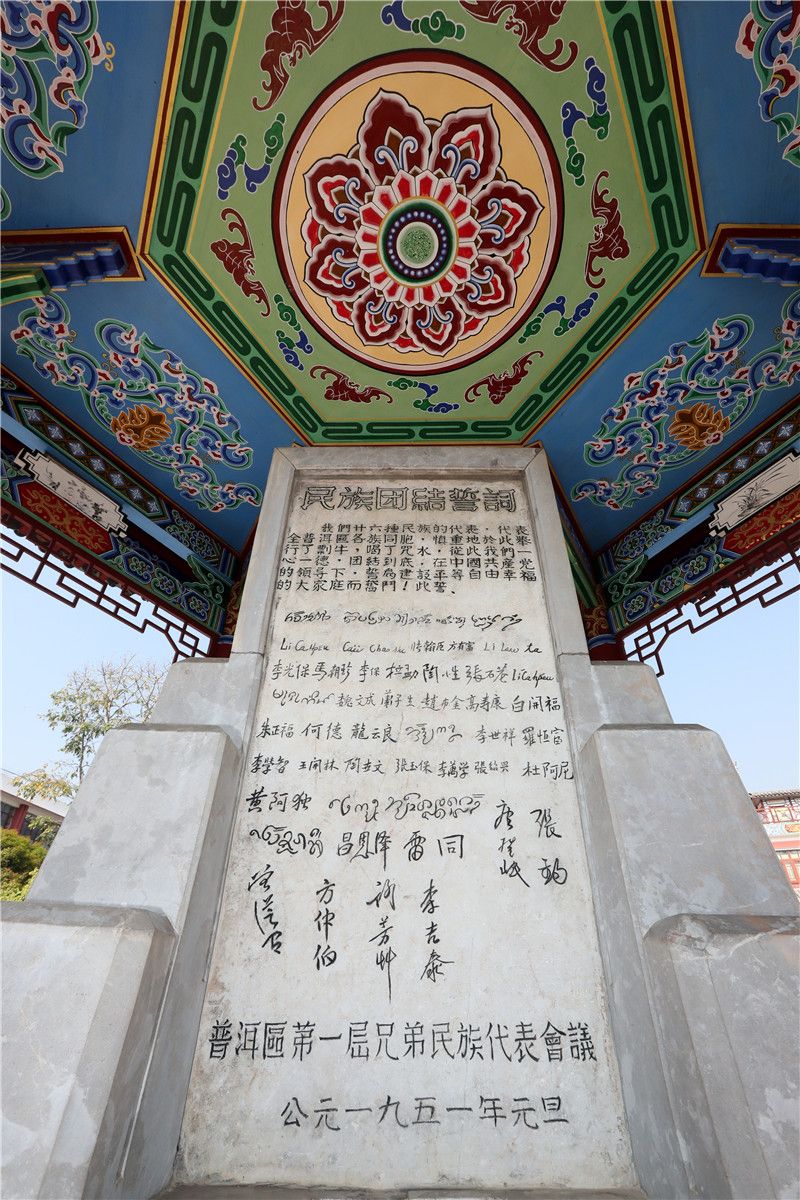 民族团結誓詞
我們廿六種民族的代表,代表
全普洱區各族同胞,慎重地於此舉
行了剽牛,喝了咒水,從此我們一
心一德,團結到底,在中國共產党
的領导下,誓為建設平等自由幸福
的大家庭而奮鬥!此誓。
Li Cahpeu 方有富 Li Lau
李光保 馬朝珍 李保 陶小生 張石菴 Licahpeu
魏文成 萧子生 趙布金 高寿康 白開福
朱正福 何德 龍云良 李世祥 羅恒富
李學智 王開林 陶世文 張玉保 李萬学 張绍兴 杜阿尼
黄阿独
昌恩泽 雷同 唐登岷 張鈞
方仲伯 謝芳草 李吉泰
普洱區第一屆兄弟民族代表會議
公元一九五一年元旦